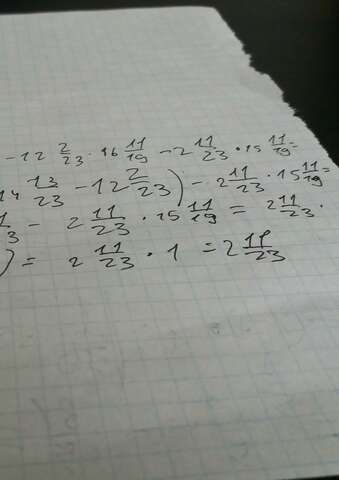 - 12 2/23 · 16 11/19 - 2 11/23 · 15 11/19 =
14 13/23 - 12 2/23) - 2 11/23 · 15 11/19 =
- 2 11/23 · 15 11/19 = 2 11/23 ·
) = 2 11/23 · 1 = 2 11/23